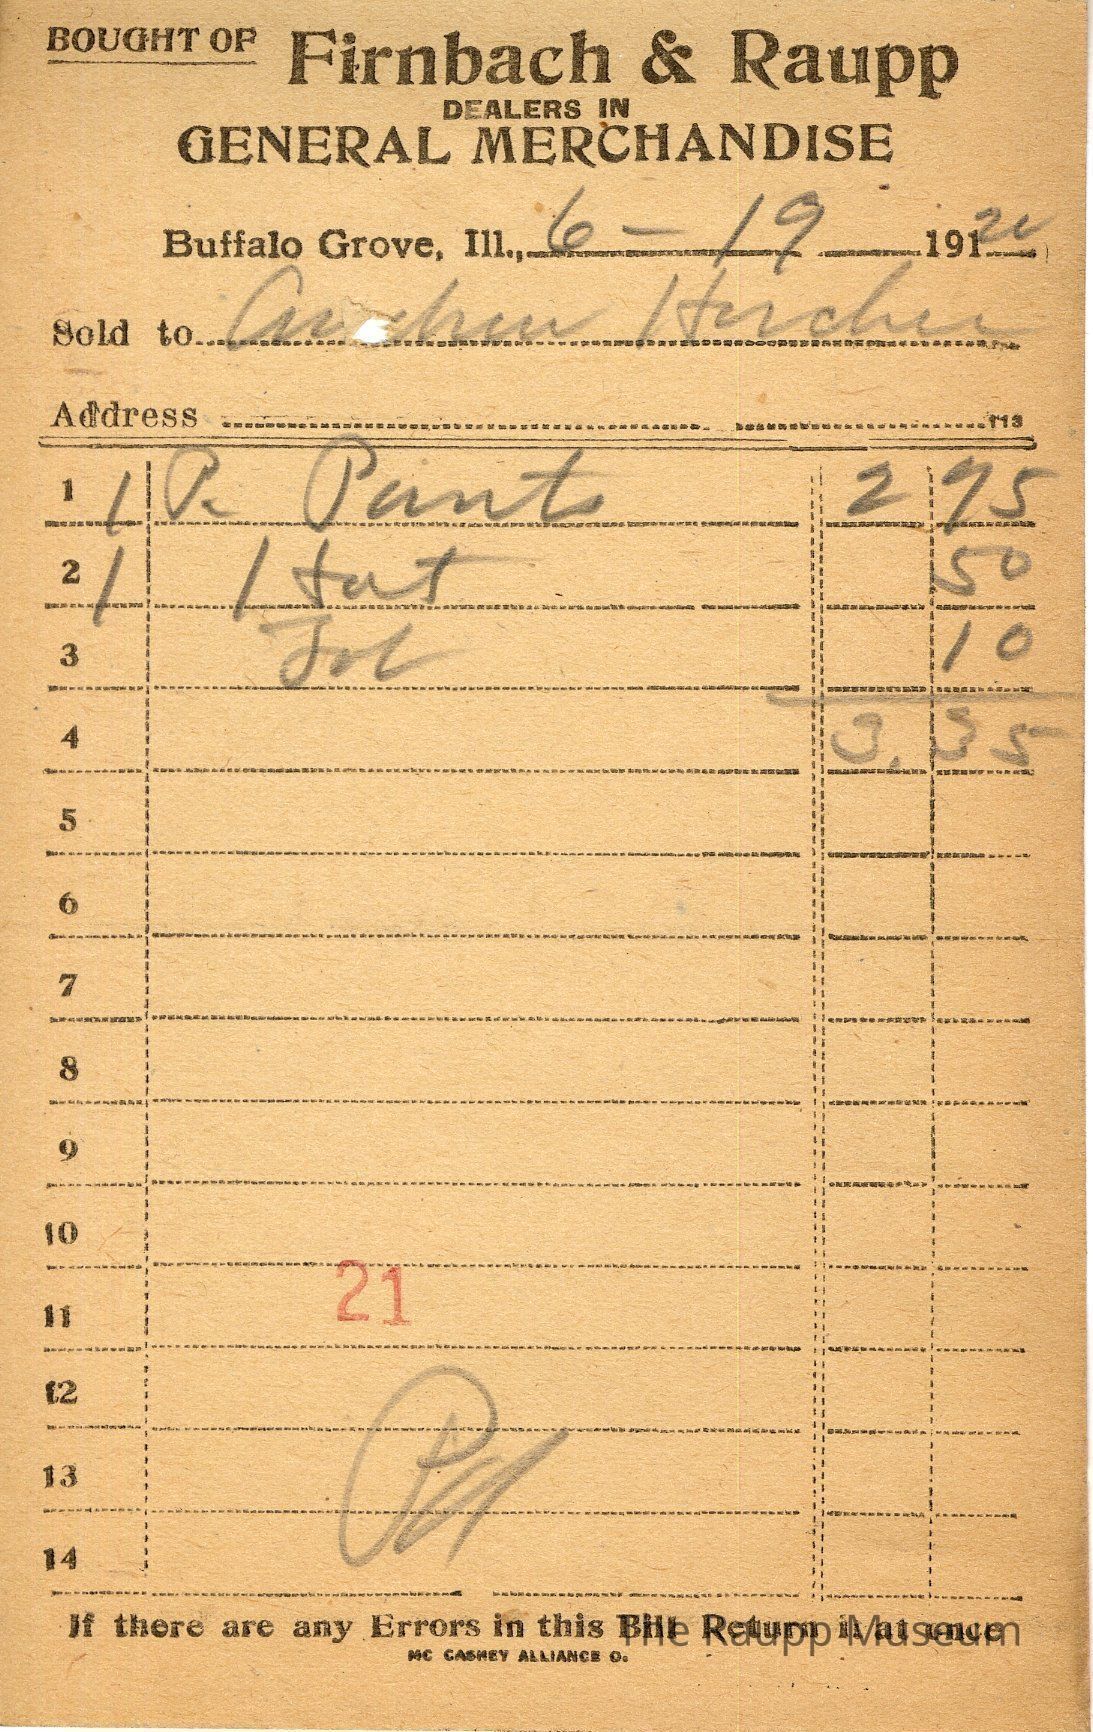 BOUGHT OF Firnbach & Raupp
DEALERS IN
GENERAL MERCHANDISE
Buffalo Grove, Ill., 6-19 191 20
Sold to
Address 113
1 1 Pr Pants 2 95
2 1 1 Hat 50
3 Tob 10
4 3.35
5
6
7
8
9
10
21
11
12
13
14
If there are any Errors in this Bill Return it at once
The Raupp Museum
MC CASKEY ALLIANCE O.